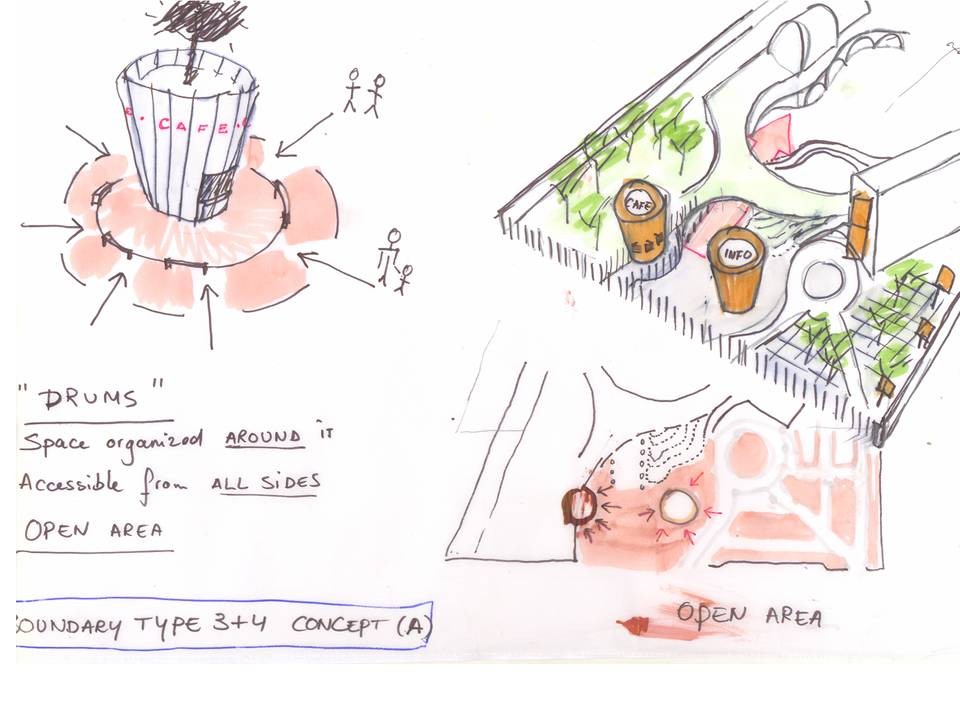 . CAFE .
CAFE
INFO
"DRUMS"
Space organized AROUND iT
Accessible from ALL SIDES
OPEN AREA
OUNDARY TYPE 3+4 CONCEPT (A)
OPEN AREA